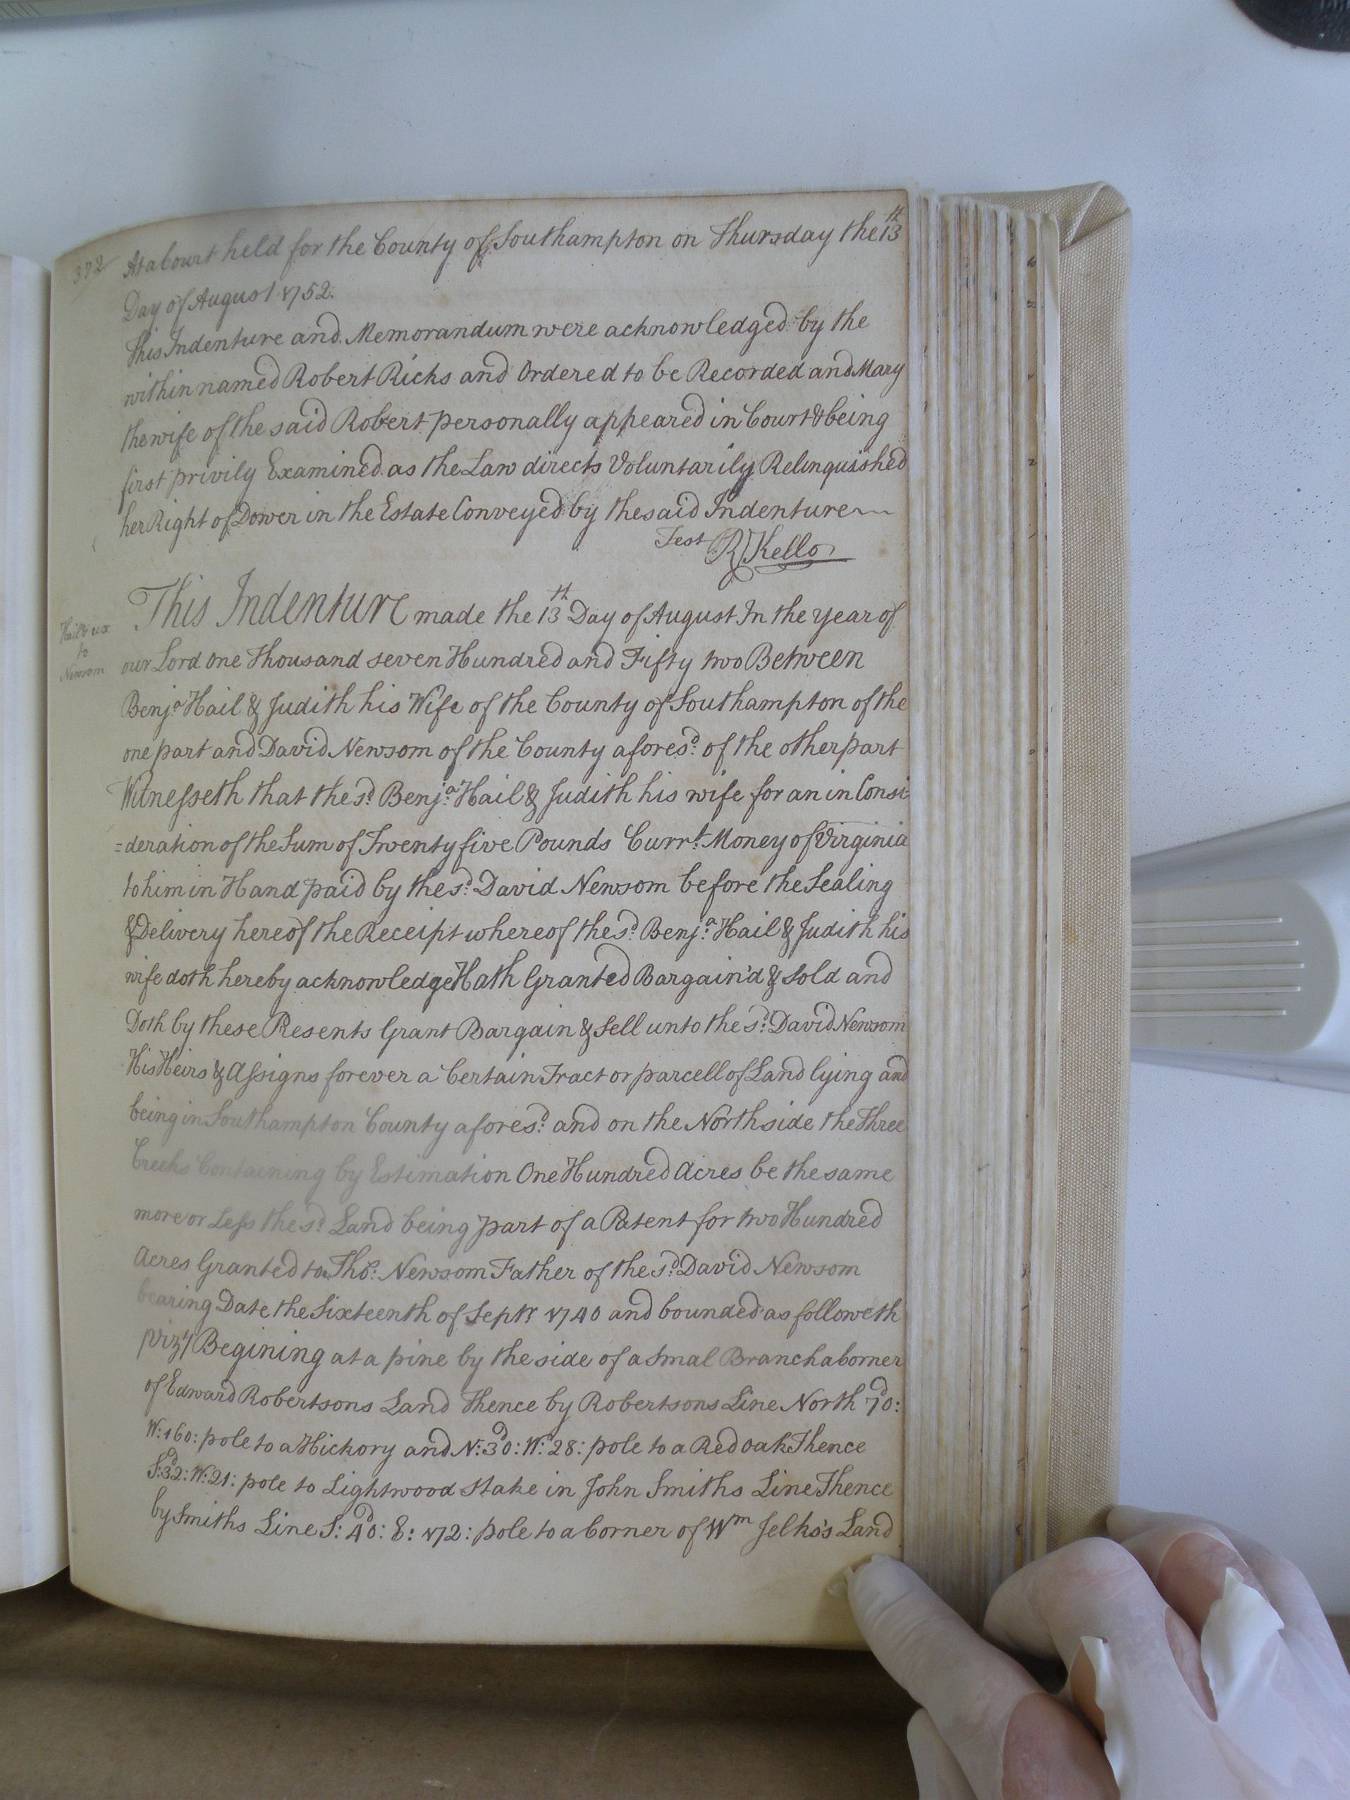 372
At a Court held for the County of Southampton on Thursday the 13th
Day of August 1752.
This Indenture and Memorandum were acknowledged by the
within named Robert Ricks and Ordered to be Recorded and Mary
the wife of the said Robert personally appeared in Court & being
first privily Examined as the Law directs Voluntarily Relinquished
her Right of Dower in the Estate Conveyed by the said Indenture
Test R Kello
Hail & ux
to
Newsom
This Indenture made the 13th Day of August In the year of
our Lord One Thousand seven Hundred and Fifty two Between
Benja Hail & Judith his Wife of the County of Southampton of the
one part and David Newsom of the County aforesd. of the other part
Witnesseth that the sd. Benja. Hail & Judith his wife for an in Consi
=deration of the Sum of Twenty five Pounds Currt. Money of Virginia
to him in Hand paid by the sd. David Newsom before the Sealing
& Delivery hereof the Receipt whereof the sd. Benja. Hail & Judith his
wife doth hereby acknowledge Hath Granted Bargain'd & Sold and
Doth by these Resents Grant Bargain & Sell unto the sd. David Newsom
His Heirs & Assigns forever a Certain Tract or parcell of Land lying and
being in Southampton County aforesd. and on the North side the Three
Creeks Containing by Estimation One Hundred Acres be the same
more or Less the sd. Land being part of a Patent for two Hundred
Acres Granted to Tho. Newsom Father of the sd. David Newsom
bearing Date the Sixteenth of Septr 1740 and bounded as followeth
(Vizt) Begining at a pine by the side of a Smal Branch a Corner
of Edward Robertsons Land Thence by Robertsons Line North 70d:
W: 160: pole to a Hickory and N: 30d: W: 28: pole to a Red oak Thence
S: 32d: W: 21: pole to Lightwood Stake in John Smiths Line Thence
by Smiths Line S: 40d: E: 172: pole to a Corner of Wm Jelks's Land